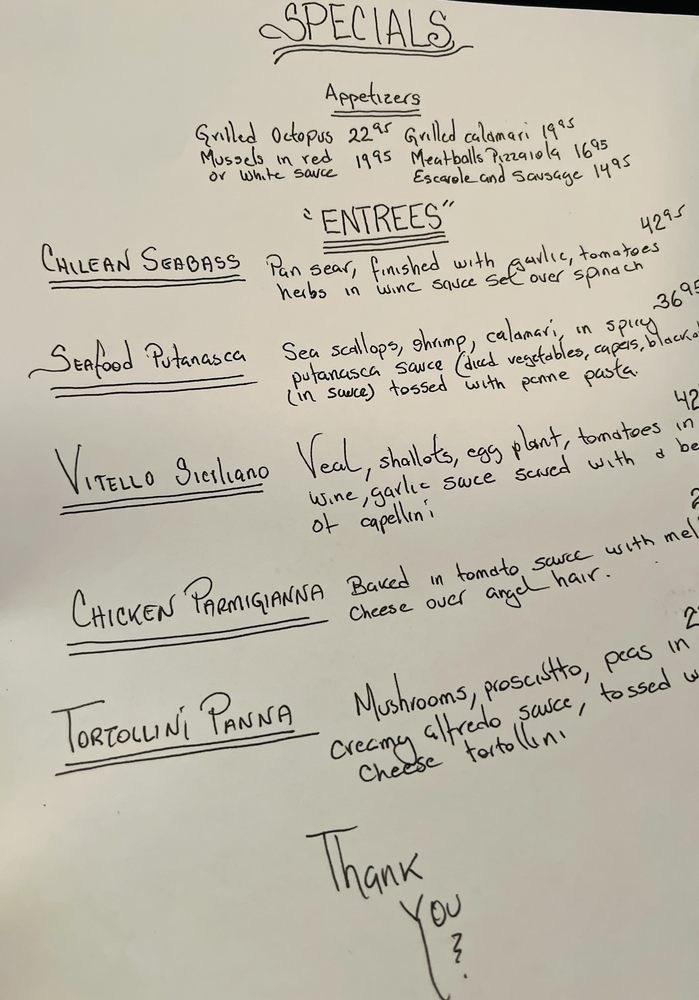 SPECIALS
Appetizers
Grilled Octopus 22.95 Grilled calamari 19.95
Mussels in red 19.95 Meatballs Pizzaiola 16.95
or white sauce Escarole and Sausage 14.95
"ENTREES"
42.95
CHILEAN SEABASS Pan sear, finished with garlic, tomatoes
herbs in wine sauce set over spinach
36.95
Seafood Putanasca Sea scallops, shrimp, calamari, in spicy
putanasca sauce (diced vegetables, capers, black
(in sauce) tossed with penne pasta.
42
VITELLO Siciliano Veal, shallots, egg plant, tomatoes in
wine, garlic sauce served with a be
of capellini
2
CHICKEN PARMIGIANNA Baked in tomato sauce with mel
Cheese over angel hair.
2
TORTOLLINI PANNA Mushrooms, prosciutto, peas in
creamy alfredo sauce, tossed w
Cheese tortollini
Thank
You